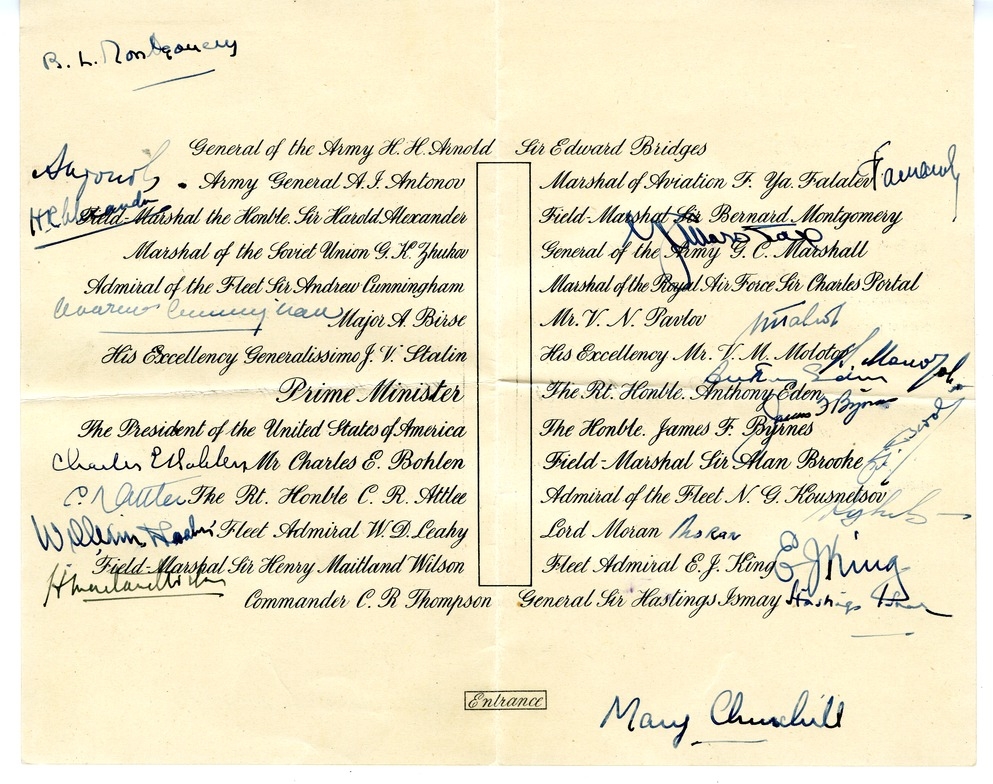 B. L. Montgomery
General of the Army H. H. Arnold Sir Edward Bridges
Army General A. I. Antonov Marshal of Aviation F. Ya. Falalev
Field-Marshal the Honble. Sir Harold Alexander Field-Marshal Sir Bernard Montgomery
Marshal of the Soviet Union G. K. Zhukov General of the Army G. C. Marshall
Admiral of the Fleet Sir Andrew Cunningham Marshal of the Royal Air Force Sir Charles Portal
Andrew Cunningham Major A. Birse Mr. V. N. Pavlov
His Excellency Generalissimo J. V. Stalin His Excellency Mr. V. M. Molotov
Prime Minister The Rt. Honble. Anthony Eden Anthony Eden
The President of the United States of America The Honble. James F. Byrnes James F Byrnes
Charles E Bohlen Mr Charles E. Bohlen Field-Marshal Sir Alan Brooke
C. R. Attlee The Rt. Honble C. R. Attlee Admiral of the Fleet N. G. Kousnetsov
William Leahy Fleet Admiral W. D. Leahy Lord Moran Moran
Field-Marshal Sir Henry Maitland Wilson Fleet Admiral E. J. King E J King
H Maitland Wilson
Commander C. R Thompson General Sir Hastings Ismay Hastings Ismay
Entrance
Mary Churchill